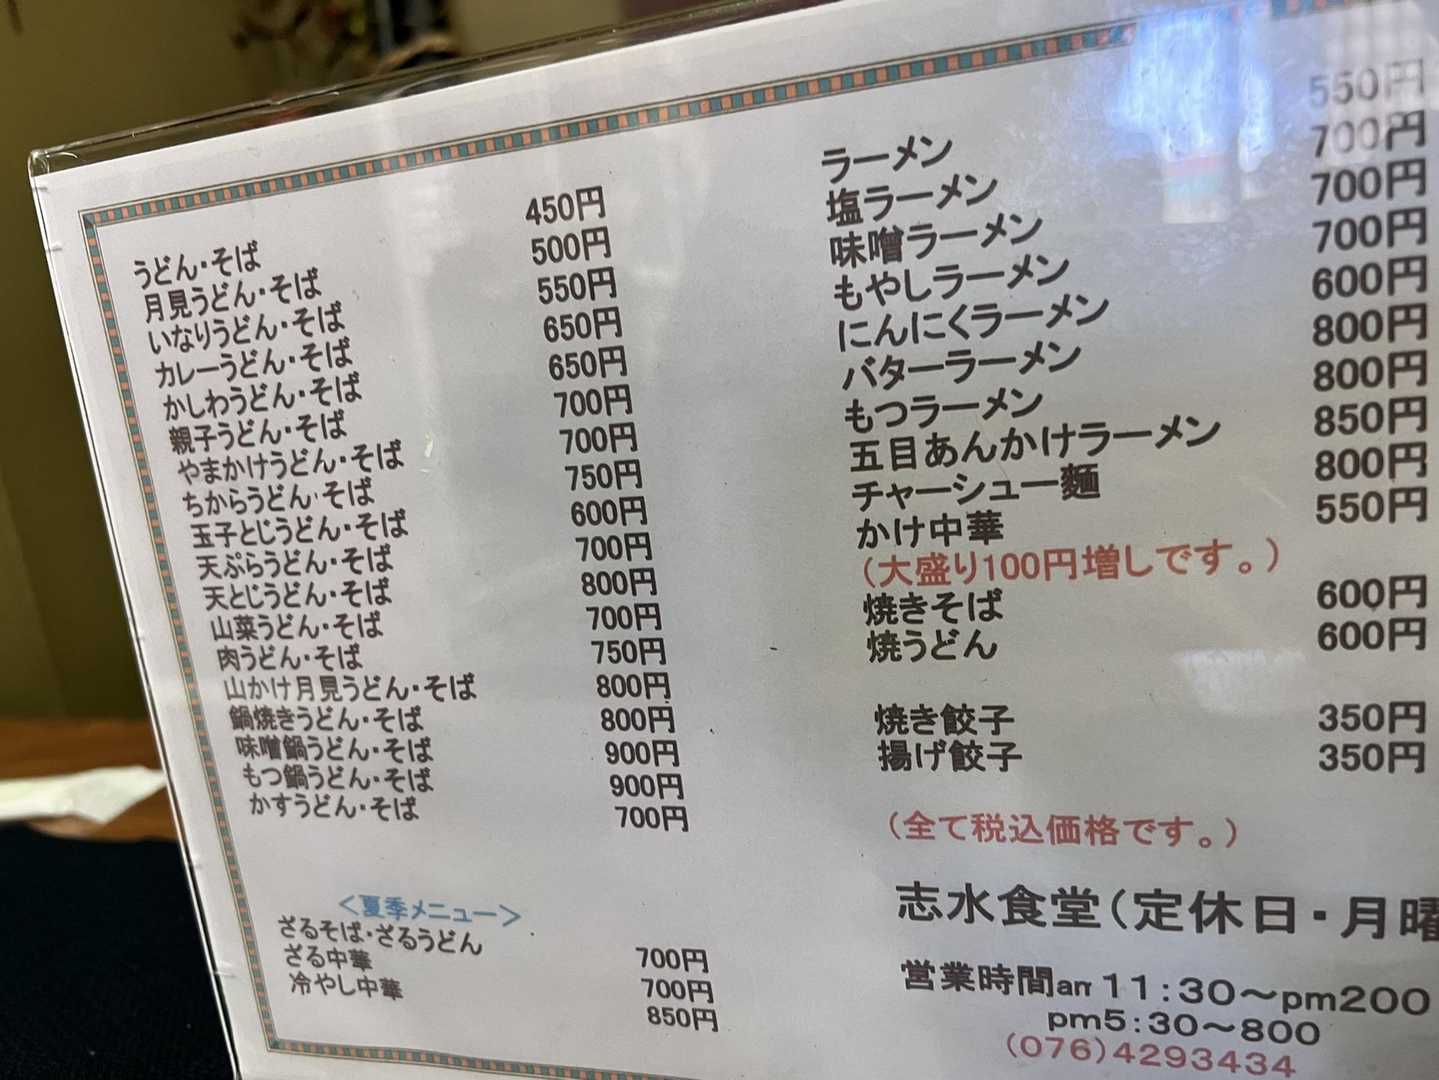 うどん・そば 450円
月見うどん・そば 500円
いなりうどん・そば 550円
カレーうどん・そば 650円
かしわうどん・そば 650円
親子うどん・そば 700円
やまかけうどん・そば 700円
ちからうどん・そば 750円
玉子とじうどん・そば 600円
天ぷらうどん・そば 700円
天とじうどん・そば 800円
山菜うどん・そば 700円
肉うどん・そば 750円
山かけ月見うどん・そば 800円
鍋焼きうどん・そば 800円
味噌鍋うどん・そば 900円
もつ鍋うどん・そば 900円
かすうどん・そば 700円
＜夏季メニュー＞
ざるそば・ざるうどん 700円
ざる中華 700円
冷やし中華 850円
ラーメン 550円
塩ラーメン 700円
味噌ラーメン 700円
もやしラーメン 700円
にんにくラーメン 600円
バターラーメン 800円
もつラーメン 800円
五目あんかけラーメン 850円
チャーシュー麺 800円
かけ中華 550円
（大盛り100円増しです。）
焼きそば 600円
焼うどん 600円
焼き餃子 350円
揚げ餃子 350円
（全て税込価格です。）
志水食堂（定休日・月曜
営業時間am 11：30～pm200
pm5：30～800
(076)4293434